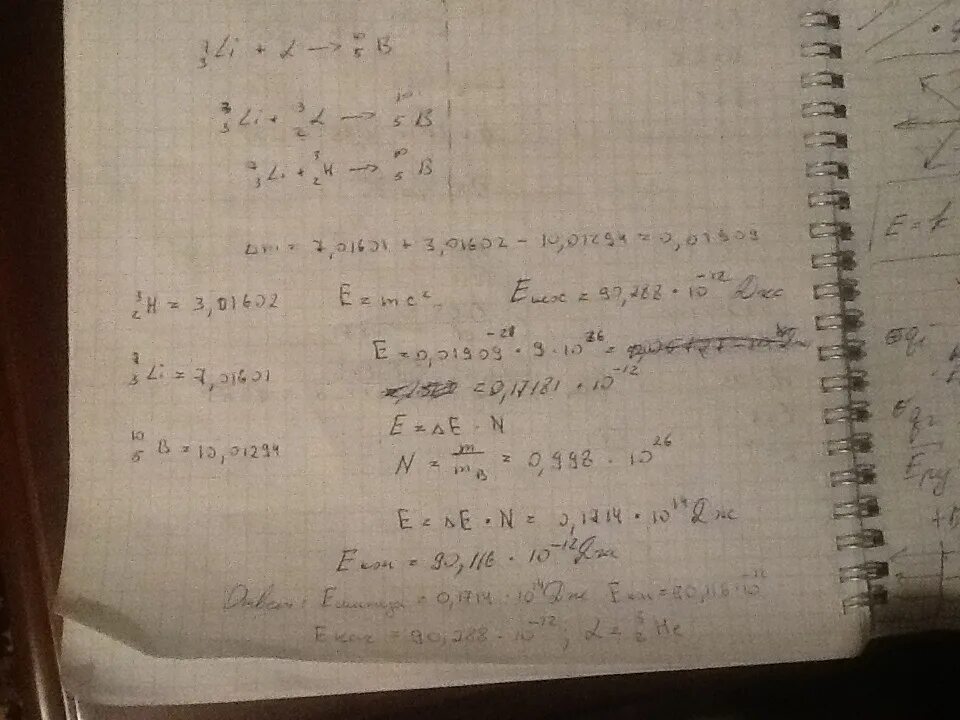 ⁷₃Li + α → ¹⁰₅B
⁷₃Li + ³₂α → ¹⁰₅B
⁷₃Li + ³₂H → ¹⁰₅B
Δm = 7,01601 + 3,01602 - 10,01294 = 0,01909
³₂H = 3,01602
E = mc²
E = 90,288 · 10⁻¹² Дж
E = 0,01909 · 9 · 10
⁷₃Li = 7,01601
= 0,17181 · 10⁻¹²
E = ΔE · N
¹⁰₅B = 10,01294
N = m/m_B = 0,998 · 10²⁶
E = ΔE · N = 0,1714 · 10¹⁴ Дж
E = 90,116 · 10⁻¹² Дж
Ответ: E = 0,1714 · 10¹⁴ Дж E = 90,116 · 10⁻¹²
E = 90,288 · 10⁻¹²; α = ³₂He
E =